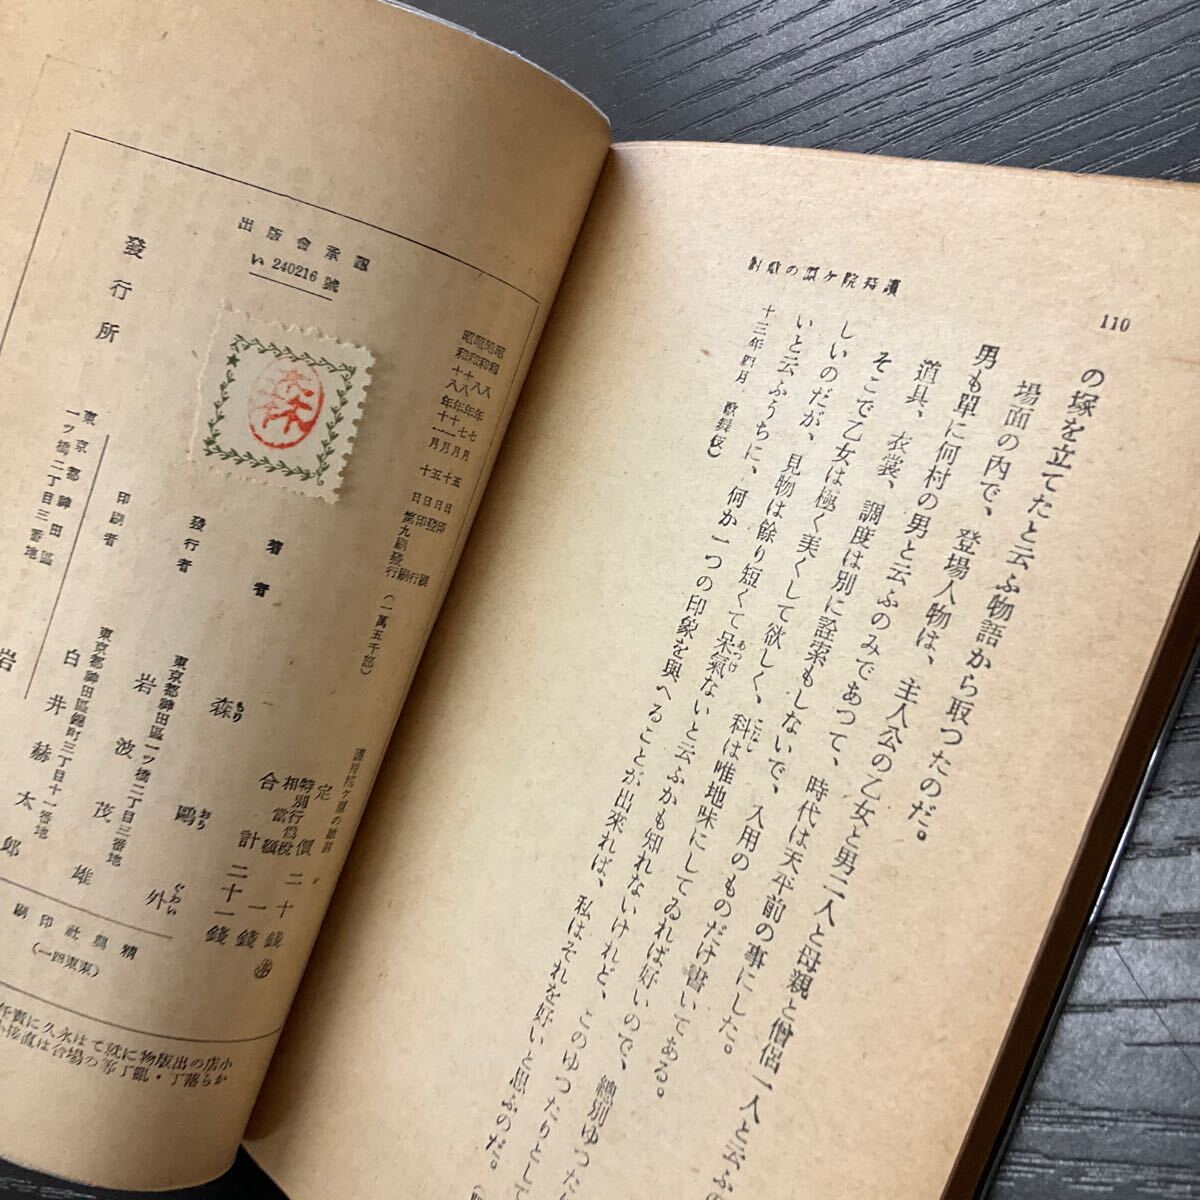 110
護持院ヶ原の敵討
の塚を立てたと云ふ物語から取つたのだ。
場面の內で、登場人物は、主人公の乙女と男二人と母親と僧侶一人と云ふの
男も單に何村の男と云ふのみであつて、時代は天平前の事にした。
道具、衣裳、調度は別に詮索もしないで、入用のものだけ書いてある。
そこで乙女は極く美くして欲しく、科は唯地味にしてゐれば好いので、總別ゆつた
こなし
しいのだが、見物は餘り短くて呆氣ないと云ふかも知れないけれど、このゆつたりとして
あつけ
いと云ふうちに、何か一つの印象を與へることが出來れば、私はそれを好いと思ふのだ。
十三年四月 歌舞伎)
出版會承認
い240216號
昭和十八年七月十五日印刷
昭和十八年七月
昭和十八年十一月十日第九刷發行(一萬五千部)
護持院ヶ原の敵討
定價二十錢
特別行爲稅相當額一錢
合計二十一錢
著者 森鷗外
もり おう ぐわい
東京都神田區一ツ橋二丁目三番地
發行者 岩波茂雄
東京都神田區錦町三丁目十一番地
印刷者 白井赫太郎
東京都神田區一ツ橋二丁目三番地
發行所 岩
精興社印刷
(東東四一)
小店の出版物に就ては永久に責任
から落丁・亂丁等の場合は直接小